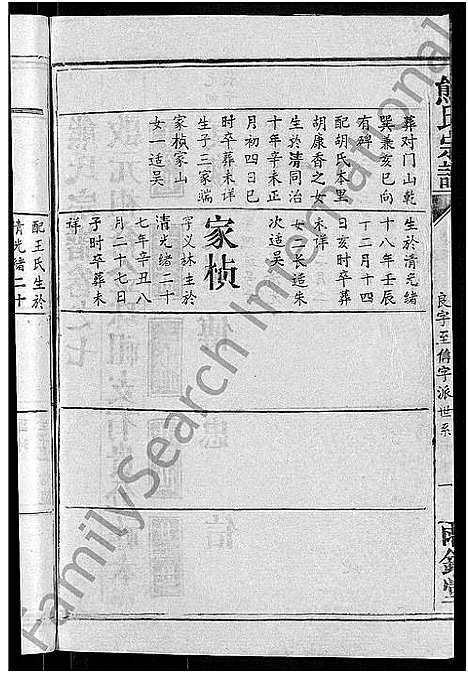 熊氏宗譜
良字至信字派世系
一
葬对门山乾
巽兼亥巳向
有碑
配胡氏本里
胡康香之女
生於清同治
十年辛未正
月初四日巳
时卒葬未详
生子三家端
家楨家山
女一适吴
生於清光緒
十八年壬辰
丁二月十四
日亥时卒葬
未详
女二长适朱
次适吴
家楨
字义林生於
清光緒二十
七年辛丑八
月二十七日
子时卒葬未
祥
配王氏生於
青光緒二十
FamilySearch International